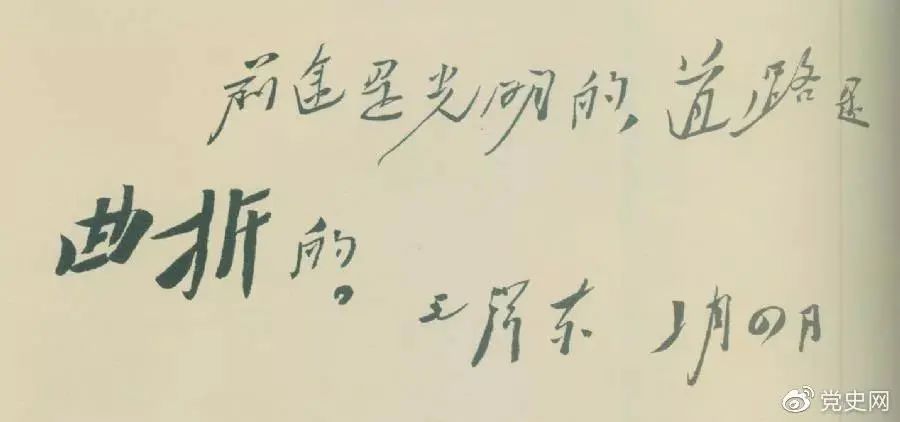 前途是光明的,道路是
曲折的。
毛泽东 九月四日
党史网